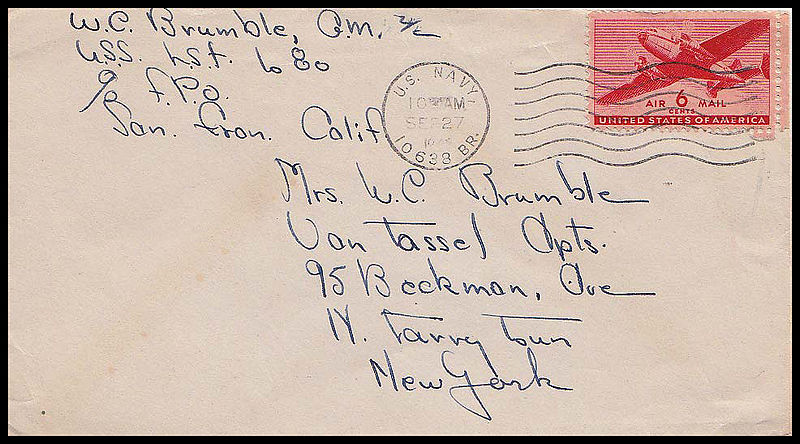 W.C. Brumble, C.M. 2/c
U.S.S. L.S.T. 680
c/o F.P.O.
San. Fran. Calif
U.S. NAVY
10 AM
27
10638 BR.
AIR 6 MAIL
CENTS
UNITED STATES OF AMERICA
Mrs. W.C. Brumble
Van Tassel Apts.
95 Beekman, Ave
N. Tarrytown
New York